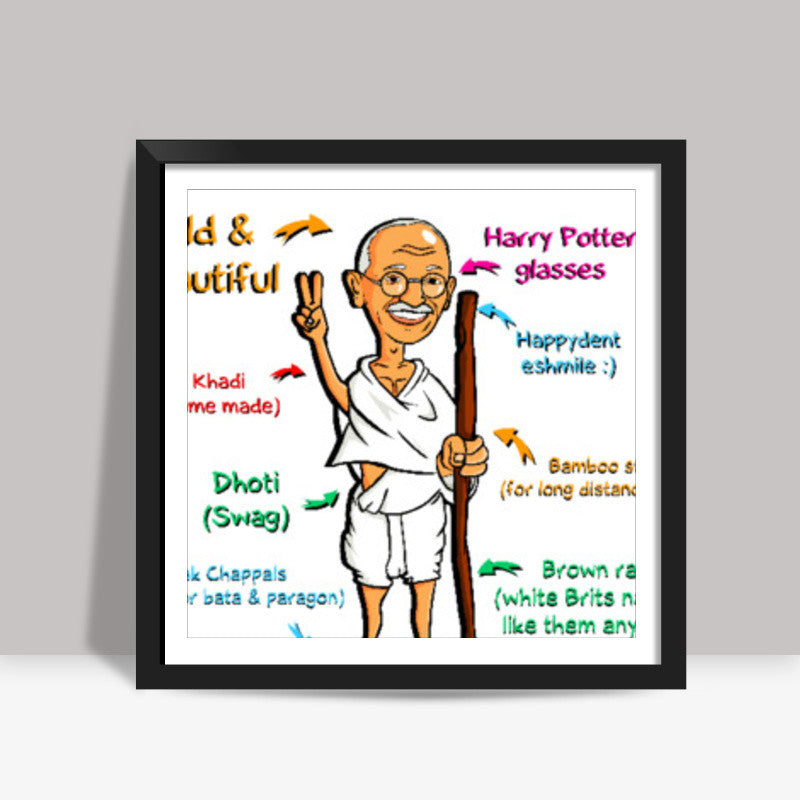 ld &
utiful
Harry Potter
glasses
Happydent
eshmile :)
Khadi
me made)
Bamboo s
(for long distanc
Dhoti
(Swag)
k Chappals
r bata & paragon)
Brown ra
(white Brits n
like them any